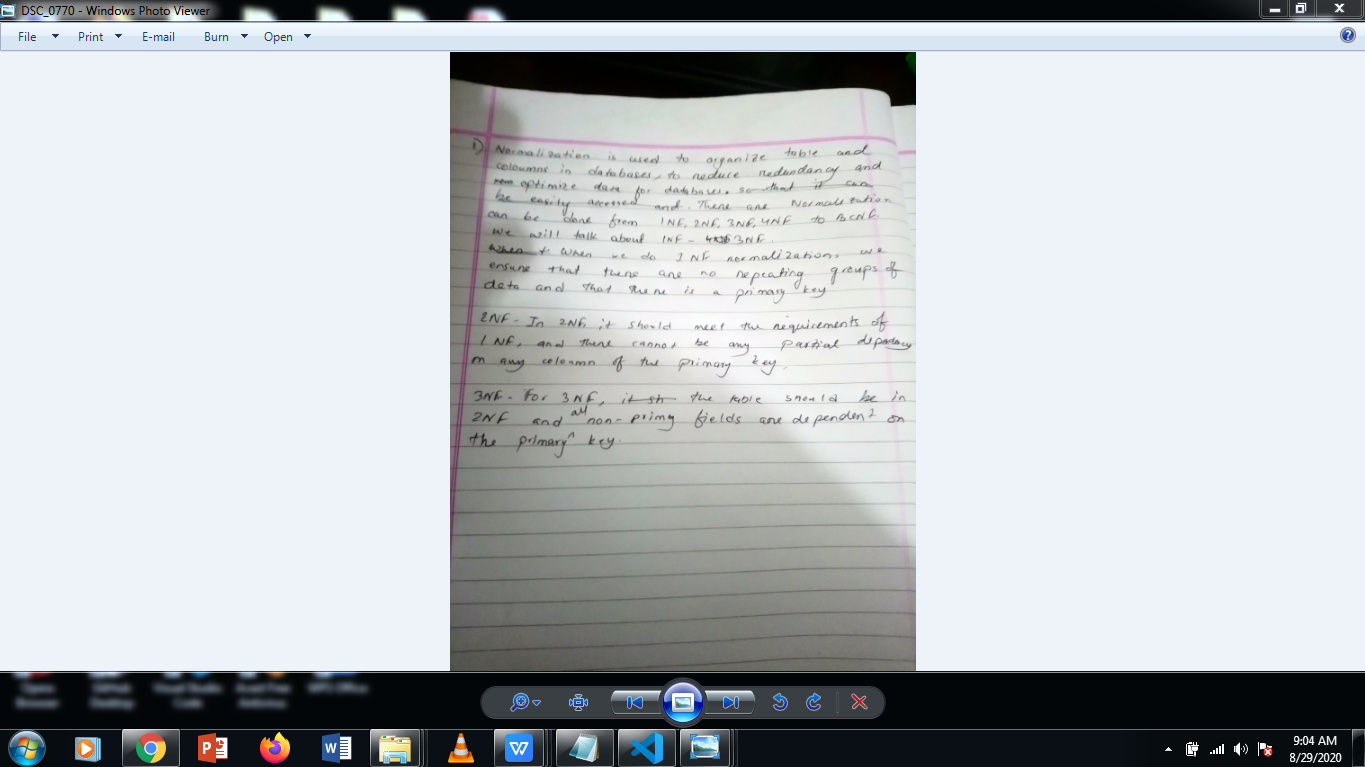 DSC_0770 - Windows Photo Viewer
File Print E-mail Burn Open
1) Normalization is used to organize table and
coloumns in databases, to reduce redundancy and
optimize data for databases. so that it can
be easily accessed and. There are Normalization
can be done from 1NF, 2NF, 3NF, 4NF to BCNF.
We will talk about 1NF - 3NF.
When t When we do 1NF normalization, we
ensure that there are no repeating groups of
data and that there is a primary key
2NF - In 2NF, it should meet the requirements of
1NF, and there cannot be any partial
on any of the primary key.
3NF - For 3NF, it sh the table should be in
2NF and all non-primy fields are dependent on
the primary key.
Open Browser
GitHub Desktop
Visual Studio Code
Avast Free Antivirus
WPS Office
9:04 AM
8/29/2020